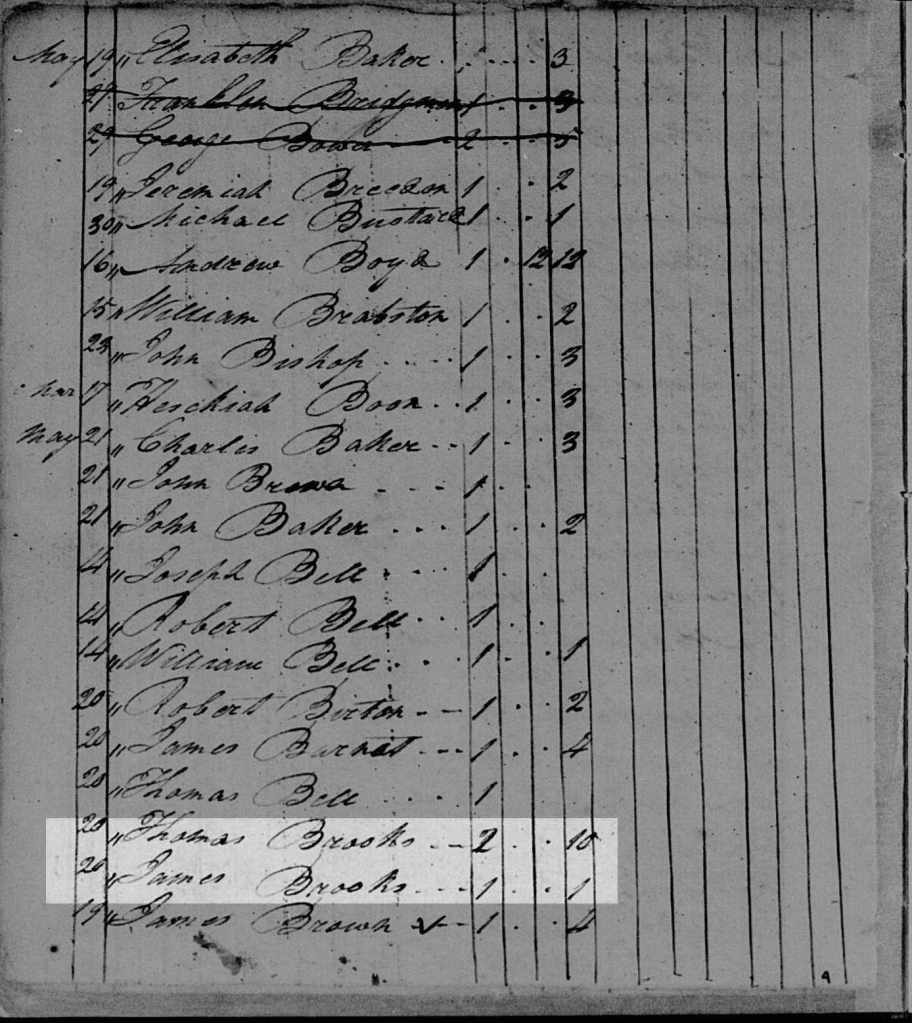 May 19 " Elisabeth Baker . . . . . . 3
27 Franklin Bridgman 1 . . 3
29 George Bowen 2 . . 5
19 " Jeremiah Breedon 1 . . 2
30 " Michael Bustard 1 . . 1
16 " Andrew Boyd 1 . 12 12
15 " William Brabston 1 . . 2
23 " John Bishop . . . . 1 . . 3
17 " Heschiah Boon . . 1 . . 3
May 21 " Charles Baker . . 1 . . 3
21 " John Brown - - - 1 . .
21 " John Baker . . . 1 . . 2
14 " Joseph Bell . . . . 1 . .
14 " Robert Bell . . . 1 . .
14 " William Bell . . . 1 . . 1
20 " Robert Birton - - 1 . . 2
20 " James Barnet - - - 1 . . 4
20 " Thomas Bell . . . . 1
20 " Thomas Brooks - - - 2 . . 10
20 " James Brooks - - - 1 . . 1
19 " James Brown - - 1 . . 4